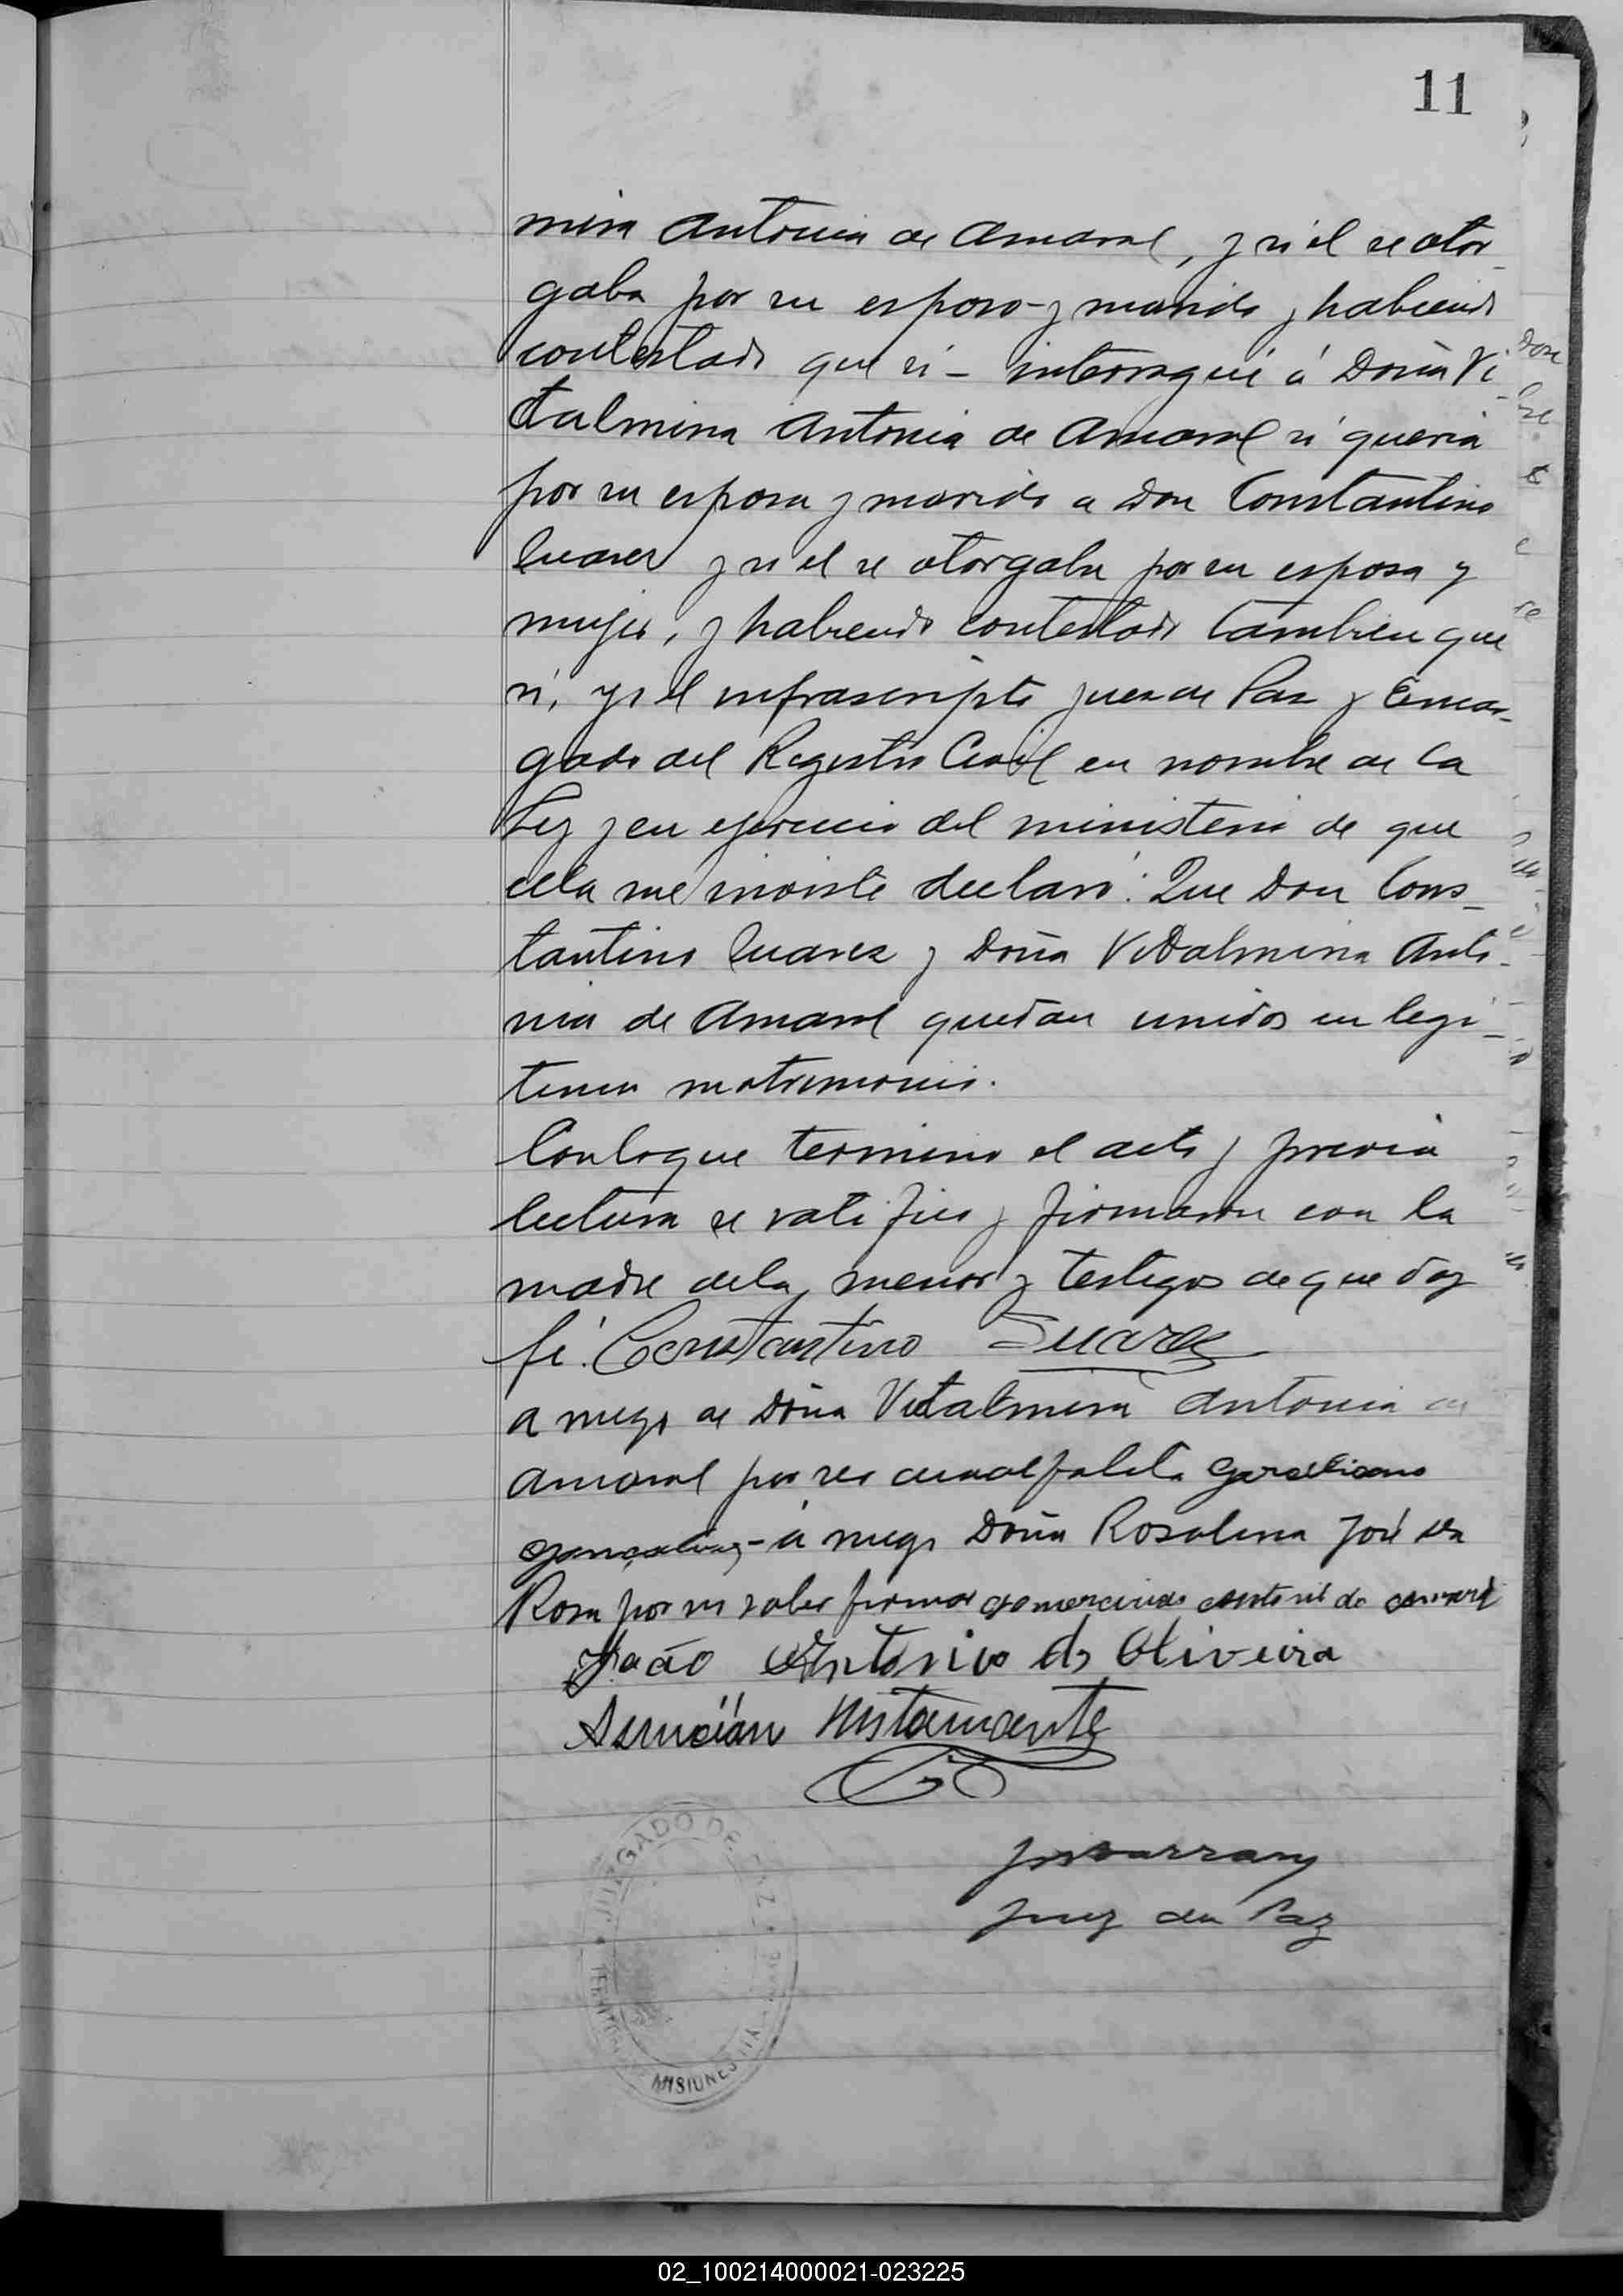 11
mina Antonia de Amaral, y si el se otor-
gaba por su esposo - y marido y habiendo
contestado que si - interrogué á Doña Vi-
talmina Antonia de Amaral si queria
por su esposa y marido a Don Constantino
Suarez y si el se otorgaba por su esposa y
mujer, y habiendo contestado tambien que
si, yo el infrascripto Juez de Paz y Encar-
gado del Registro Civil en nombre de la
Ley y en ejercicio del ministerio de que
ella me inviste declaró: Que Don Cons-
tantino Suarez y Doña Vitalmina Anto-
nia de Amaral quedan unidos en legi-
timo matrimonio.
Con lo que termino el acto y previa
lectura se ratifico y firmaron con la
madre de la menor y testigos de que doy
fé. Constantino Suarez
a ruego de Doña Vitalmina Antonia de
Amaral por ser analfabeta
á ruego Doña Rosalina José da
Rosa por no saber firmar
João Antonio de Oliveira
Asunción
Juez de Paz
JUZGADO DE PAZ
MISIONES
02_100214000021-023225